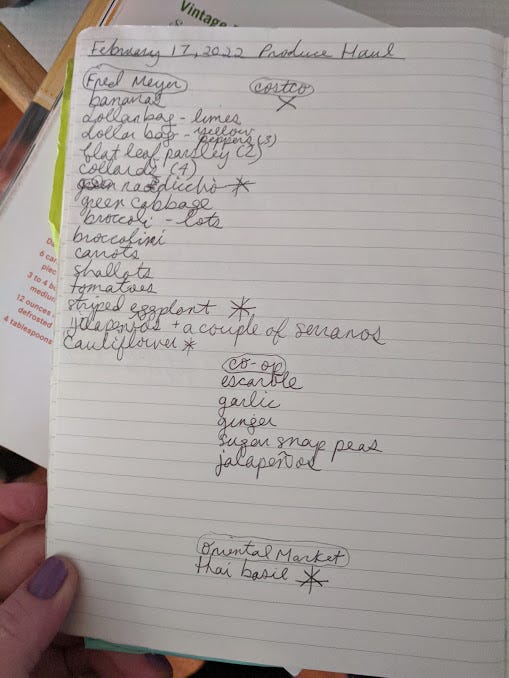 Vintage
February 17, 2022 Produce Haul
Fred Meyer
bananas
dollar bag - limes
dollar bag - yellow peppers (3)
flat leaf parsley (2)
collards (4)
radicchio *
green cabbage
broccoli - lots
broccolini
carrots
shallots
tomatoes
striped eggplant *
jalapeños + a couple of serranos
cauliflower *
costco
X
co-op
escarole
garlic
ginger
sugar snap peas
jalapeños
Oriental Market
thai basil *
6 car
piec
3 to 4 bu
mediu
12 ounces
defrosted
4 tablespoons